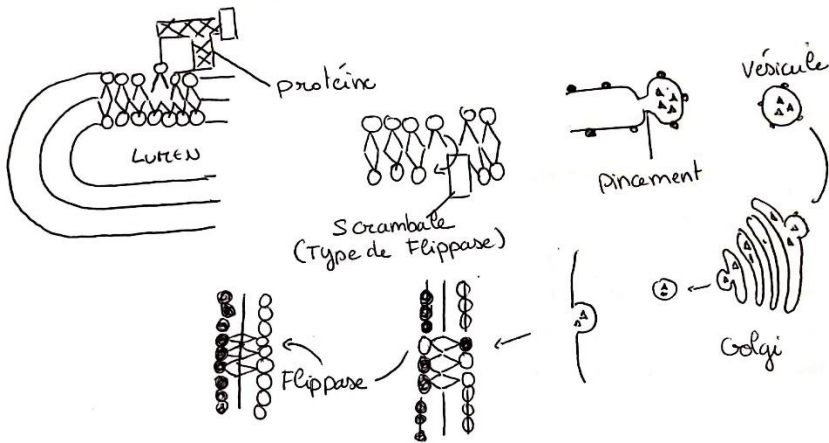 protéine
LUMEN
Scrambale
(Type de Flippase)
pincement
vésicule
Golgi
Flippase